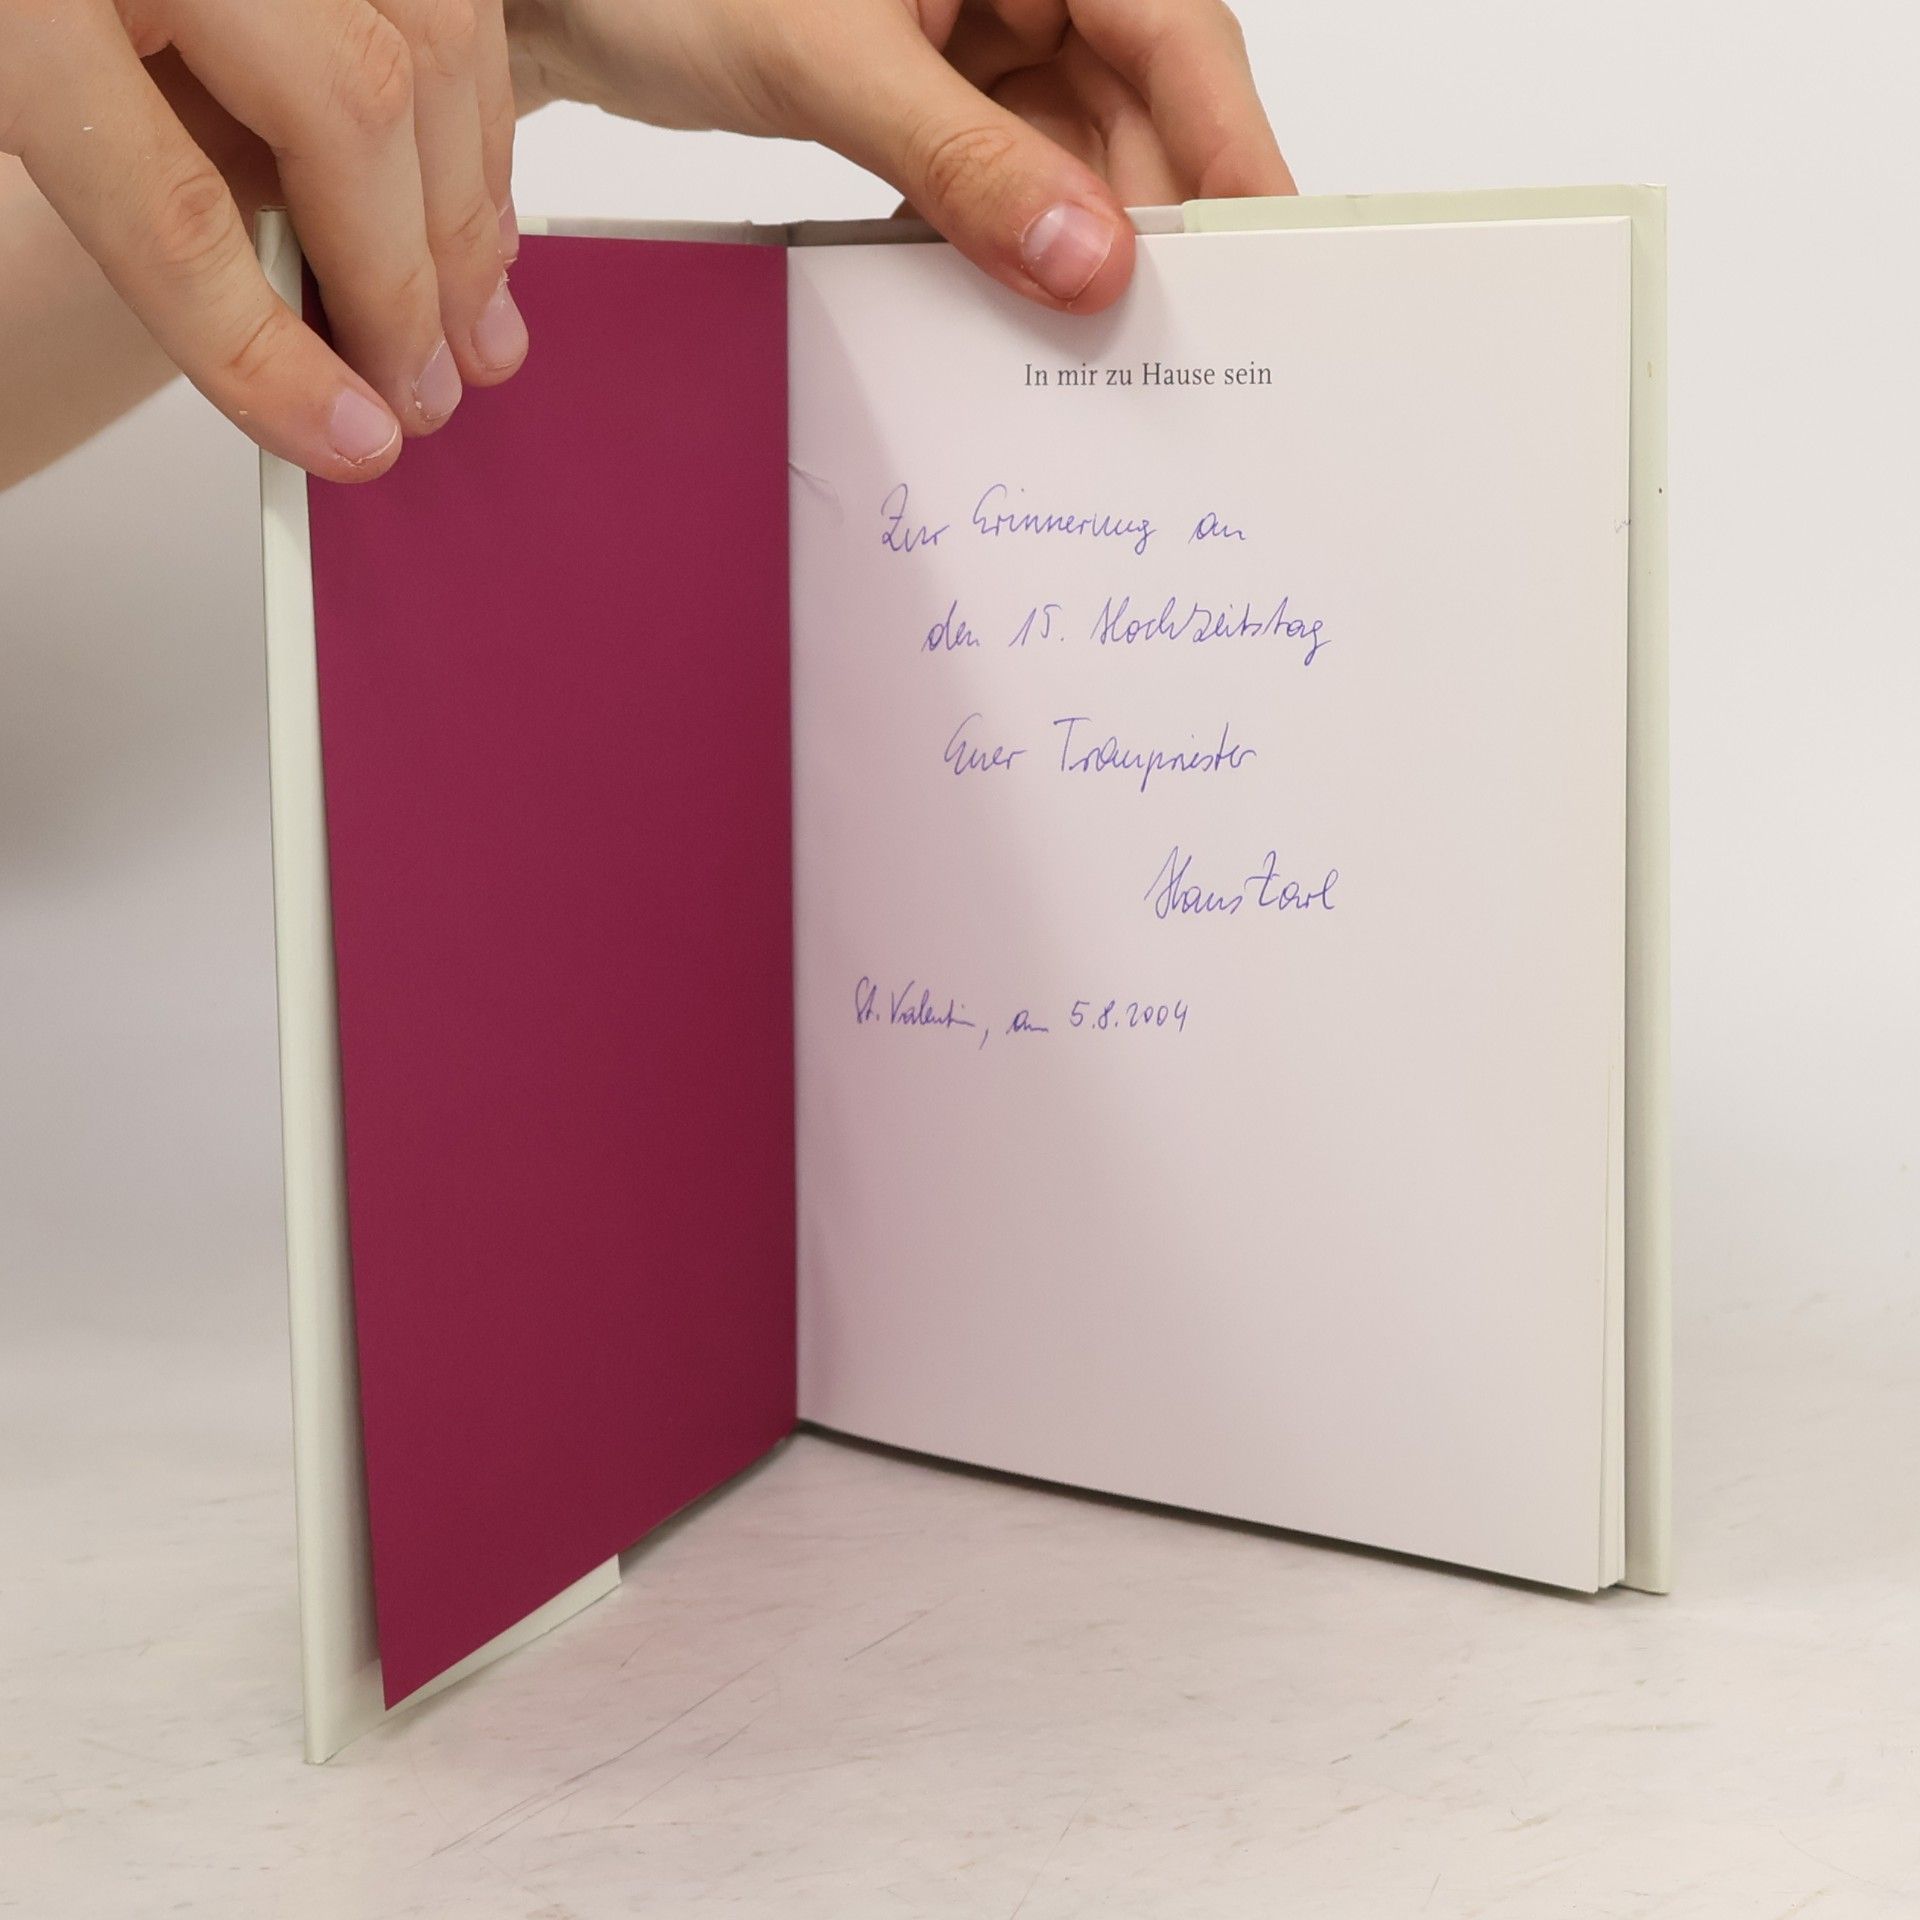 In mir zu Hause sein
Zur Erinnerung an
den 15. Hochzeitstag
Euer Traupriester
Hans Zarl
St. Valentin, am 5.8.2004